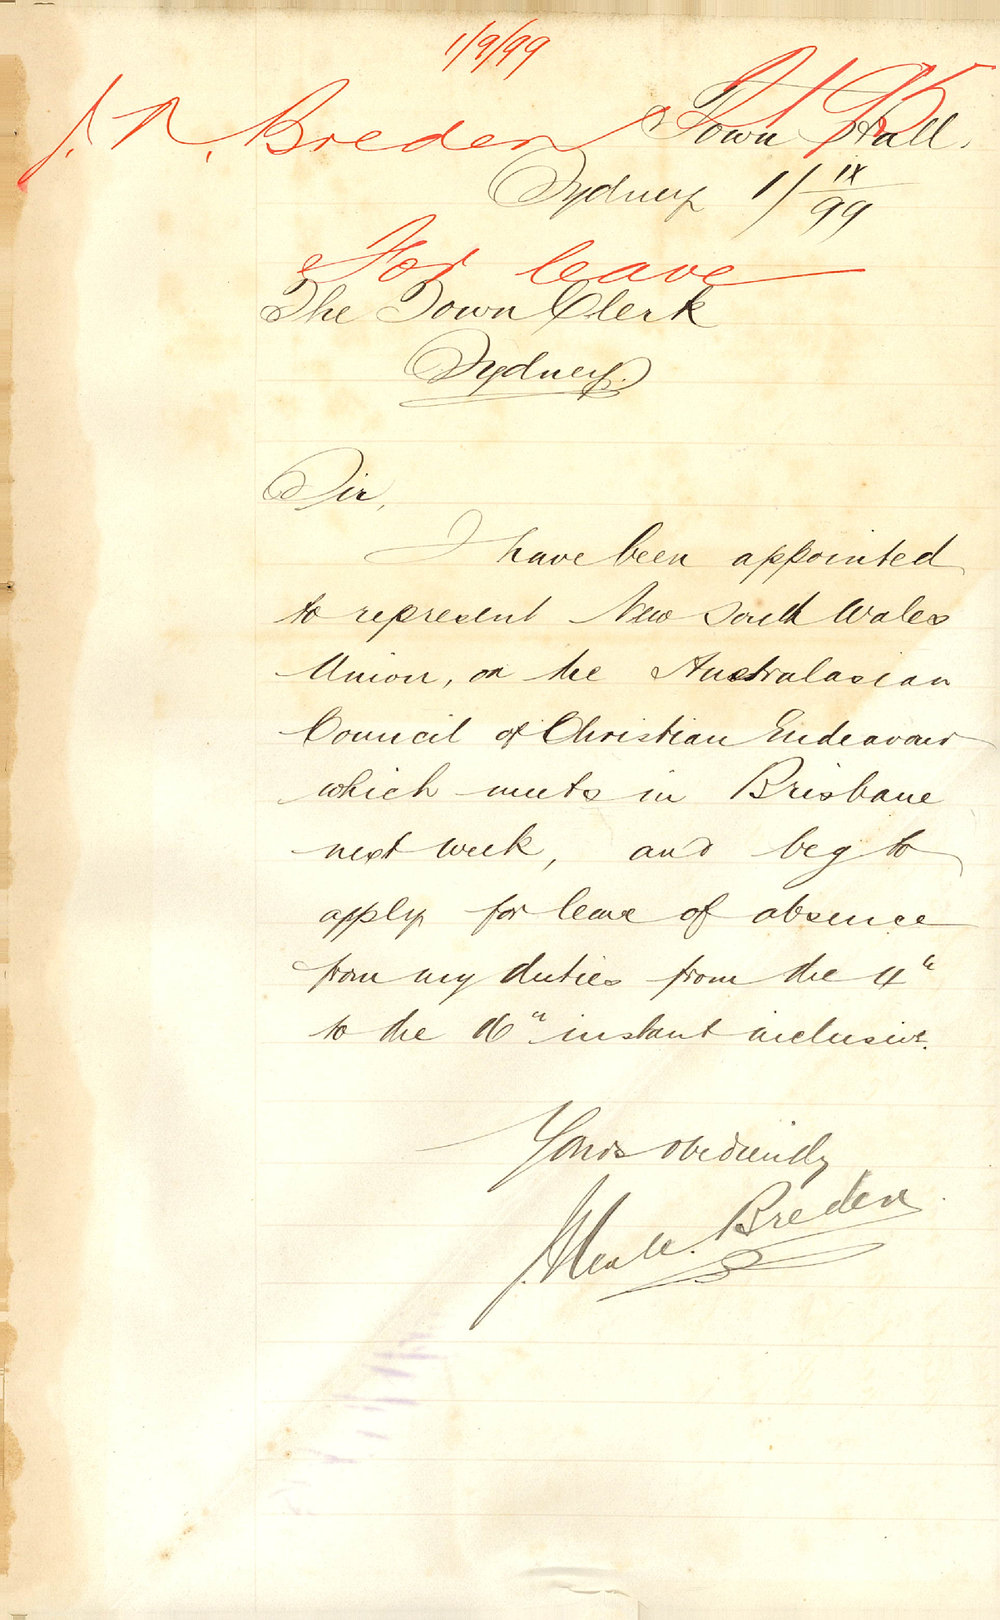 1/9/99
J. N. Breden
Town Hall.
Sydney 1/IX/99
For leave
The Town Clerk
Sydney.
Sir,
I have been appointed
to represent New South Wales
Union, on the Australasian
Council of Christian Endeavour
which meets in Brisbane
next week, and beg to
apply for leave of absence
from my duties from the 4th
to the 16th instant inclusive.
Yours obediently
Breden